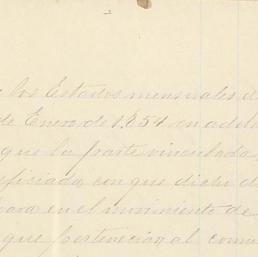 los Estados mensuales d
de Enero de 1854 en adel
que la parte vinculada
eficiada, con que dicha d
para en el movimiento de
que pertenecian al comu